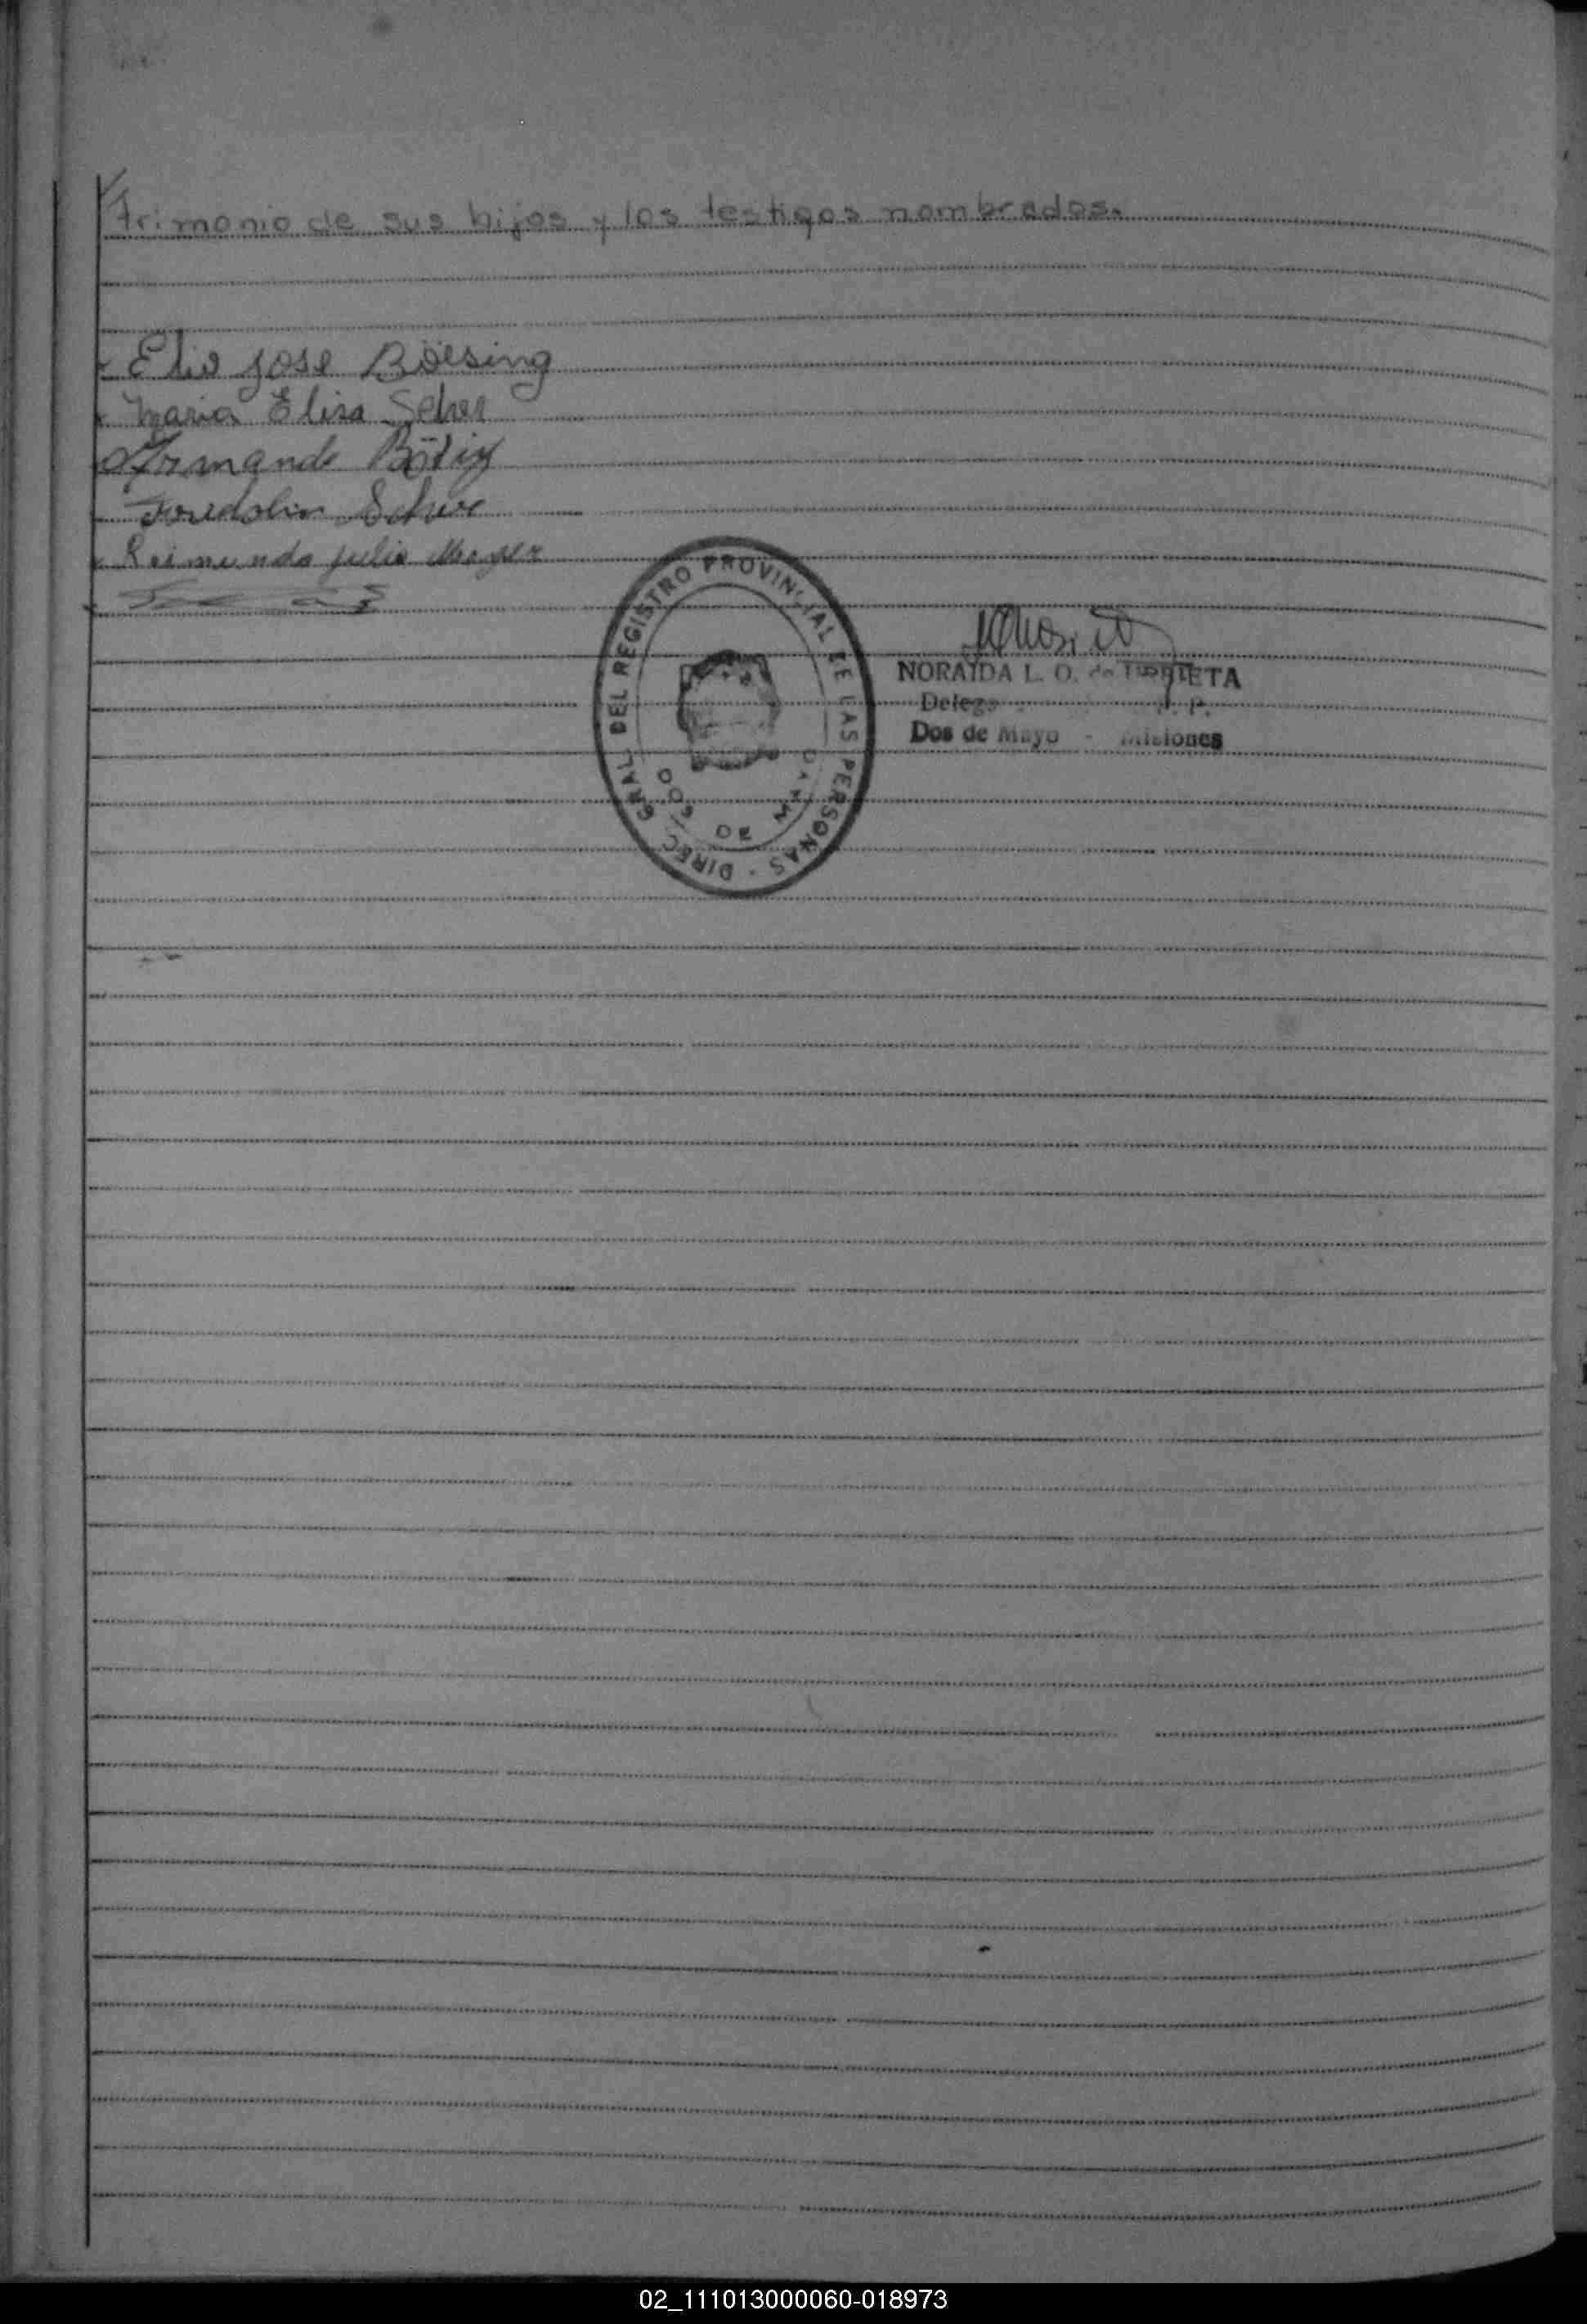 trimonio de sus hijos y los testigos nombrados.
Elio Jose Böesing
Maria Elisa Scher
Armando
Fridolin Scher
Reimundo Julio
DIREC. GRAL. DEL REGISTRO PROVINCIAL DE LAS PERSONAS
DOS DE MAYO
NORAIDA L. O. de
Dos de Mayo - Misiones
02_111013000060-018973